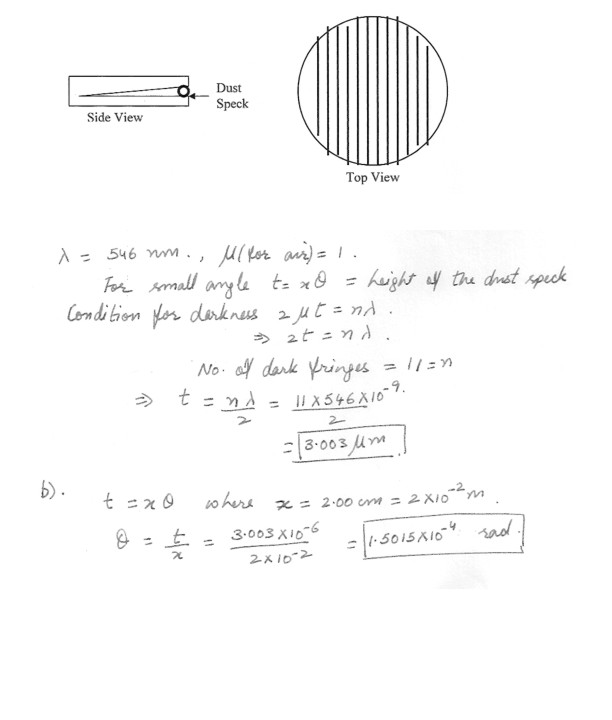 Dust
Speck
Side View
Top View
λ = 546 nm., μ(for air) = 1.
For small angle t = xθ = height of the dust speck
Condition for darkness 2μt = nλ.
⇒ 2t = nλ.
No. of dark fringes = 11 = n
⇒ t = nλ/2 = 11×546×10⁻⁹/2
= 3.003 μm
b).
t = xθ where x = 2.00 cm = 2×10⁻² m.
θ = t/x = 3.003×10⁻⁶/2×10⁻² = 1.5015×10⁻⁴ rad.